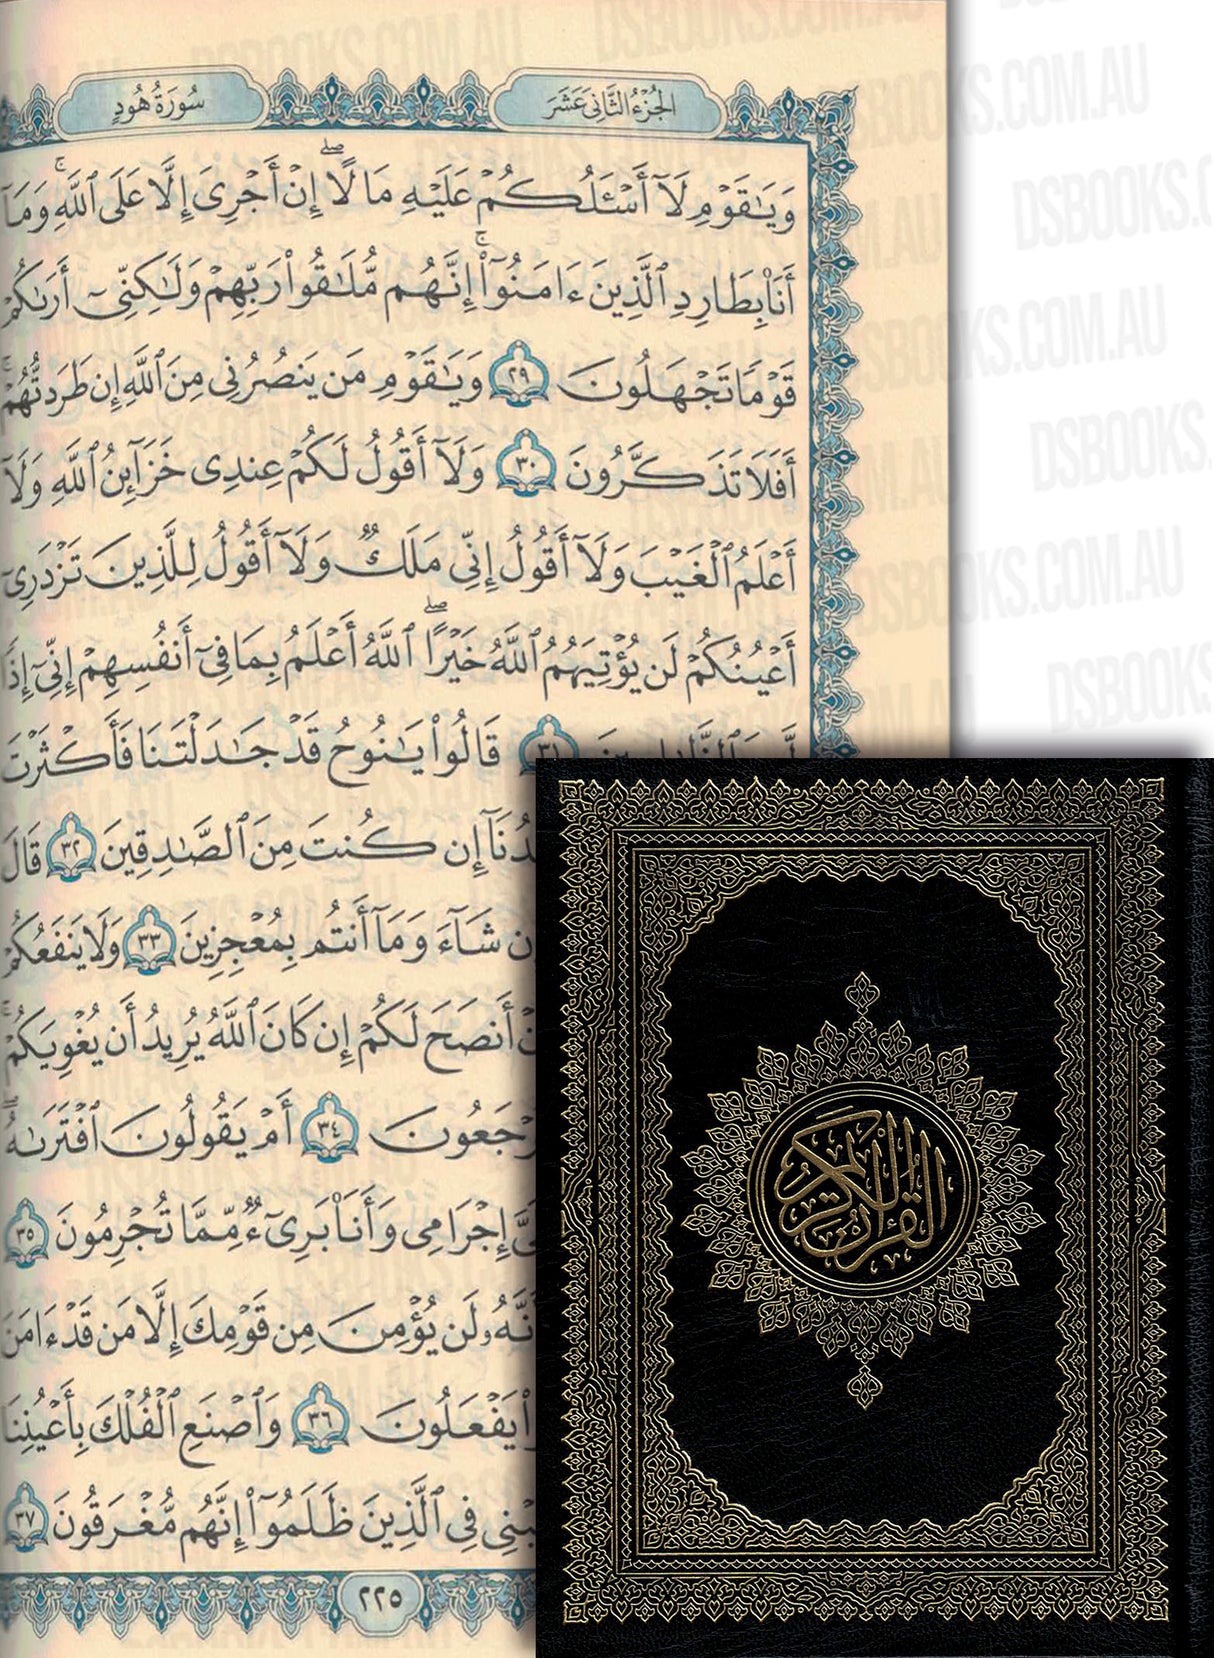 سُورَةُ هُودٍ
الجُزْءُ الثَّانِي عَشَرَ
وَيَٰقَوْمِ لَآ أَسْـَٔلُكُمْ عَلَيْهِ مَالًا ۖ إِنْ أَجْرِىَ إِلَّا عَلَى ٱللَّهِ ۚ وَمَآ
أَنَا۠ بِطَارِدِ ٱلَّذِينَ ءَامَنُوٓا۟ ۚ إِنَّهُم مُّلَٰقُوا۟ رَبِّهِمْ وَلَٰكِنِّىٓ أَرَىٰكُمْ
قَوْمًا تَجْهَلُونَ ٢٩ وَيَٰقَوْمِ مَن يَنصُرُنِى مِنَ ٱللَّهِ إِن طَرَدتُّهُمْ ۚ
أَفَلَا تَذَكَّرُونَ ٣٠ وَلَآ أَقُولُ لَكُمْ عِندِى خَزَآئِنُ ٱللَّهِ وَلَآ
أَعْلَمُ ٱلْغَيْبَ وَلَآ أَقُولُ إِنِّى مَلَكٌ وَلَآ أَقُولُ لِلَّذِينَ تَزْدَرِىٓ
أَعْيُنُكُمْ لَن يُؤْتِيَهُمُ ٱللَّهُ خَيْرًا ۖ ٱللَّهُ أَعْلَمُ بِمَا فِىٓ أَنفُسِهِمْ ۖ إِنِّىٓ إِذًا
٣١ قَالُوا۟ يَٰنُوحُ قَدْ جَٰدَلْتَنَا فَأَكْثَرْتَ
إِن كُنتَ مِنَ ٱلصَّٰدِقِينَ ٣٢ قَالَ
شَآءَ وَمَآ أَنتُم بِمُعْجِزِينَ ٣٣ وَلَا يَنفَعُكُمْ
أَنصَحَ لَكُمْ إِن كَانَ ٱللَّهُ يُرِيدُ أَن يُغْوِيَكُمْ ۚ
٣٤ أَمْ يَقُولُونَ ٱفْتَرَىٰهُ ۖ
إِجْرَامِى وَأَنَا۠ بَرِىٓءٌ مِّمَّا تُجْرِمُونَ ٣٥
لَن يُؤْمِنَ مِن قَوْمِكَ إِلَّا مَن قَدْ ءَامَنَ
يَفْعَلُونَ ٣٦ وَٱصْنَعِ ٱلْفُلْكَ بِأَعْيُنِنَا
فِى ٱلَّذِينَ ظَلَمُوٓا۟ ۚ إِنَّهُم مُّغْرَقُونَ ٣٧
٢٢٥
القرآن الكريم
DSBOOKS.COM.AU